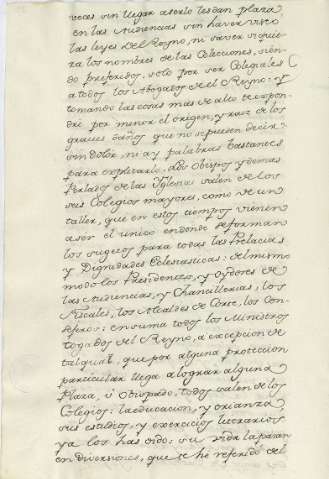 veces sin llegar a serlo les dan plaza
en las Audiencias sin haver visto
las leyes del Reyno, ni saver siquie
ra los nombres de las Colecciones, sien
do preferidos, solo por ser Colegiales
a todos los Abogados de el Reyno: y
tomando las cosas mas de alto expon
dré por menor el origen, y raiz de los
graves daños que no se pueden decir
sin dolor, ni ay palabras bastantes
para explicarlo. Los Obispos y demas
Prelados de las Yglesias salen de los
seis Colegios mayores, como de un
taller, que en estos tiempos vienen
a ser el unico en donde se forman
los sugetos para todas las Prelacias
y Dignidades Eclesiasticas: del mismo
modo los Presidentes, y Oydores de
las Audiencias, y Chancillerias, los
Fiscales, los Alcaldes de Corte, los Con
sejeros: en suma todos los Ministros
togados del Reyno, a excepcion de
tal qual, que por alguna proteccion
particular llega a lograr alguna
Plaza, ú Obispado, todos salen de los
Colegios: la educacion, y crianza,
sus estudios, y exercicios literarios
ya los has oido: su vida la pasan
en diversiones, que te he referido del